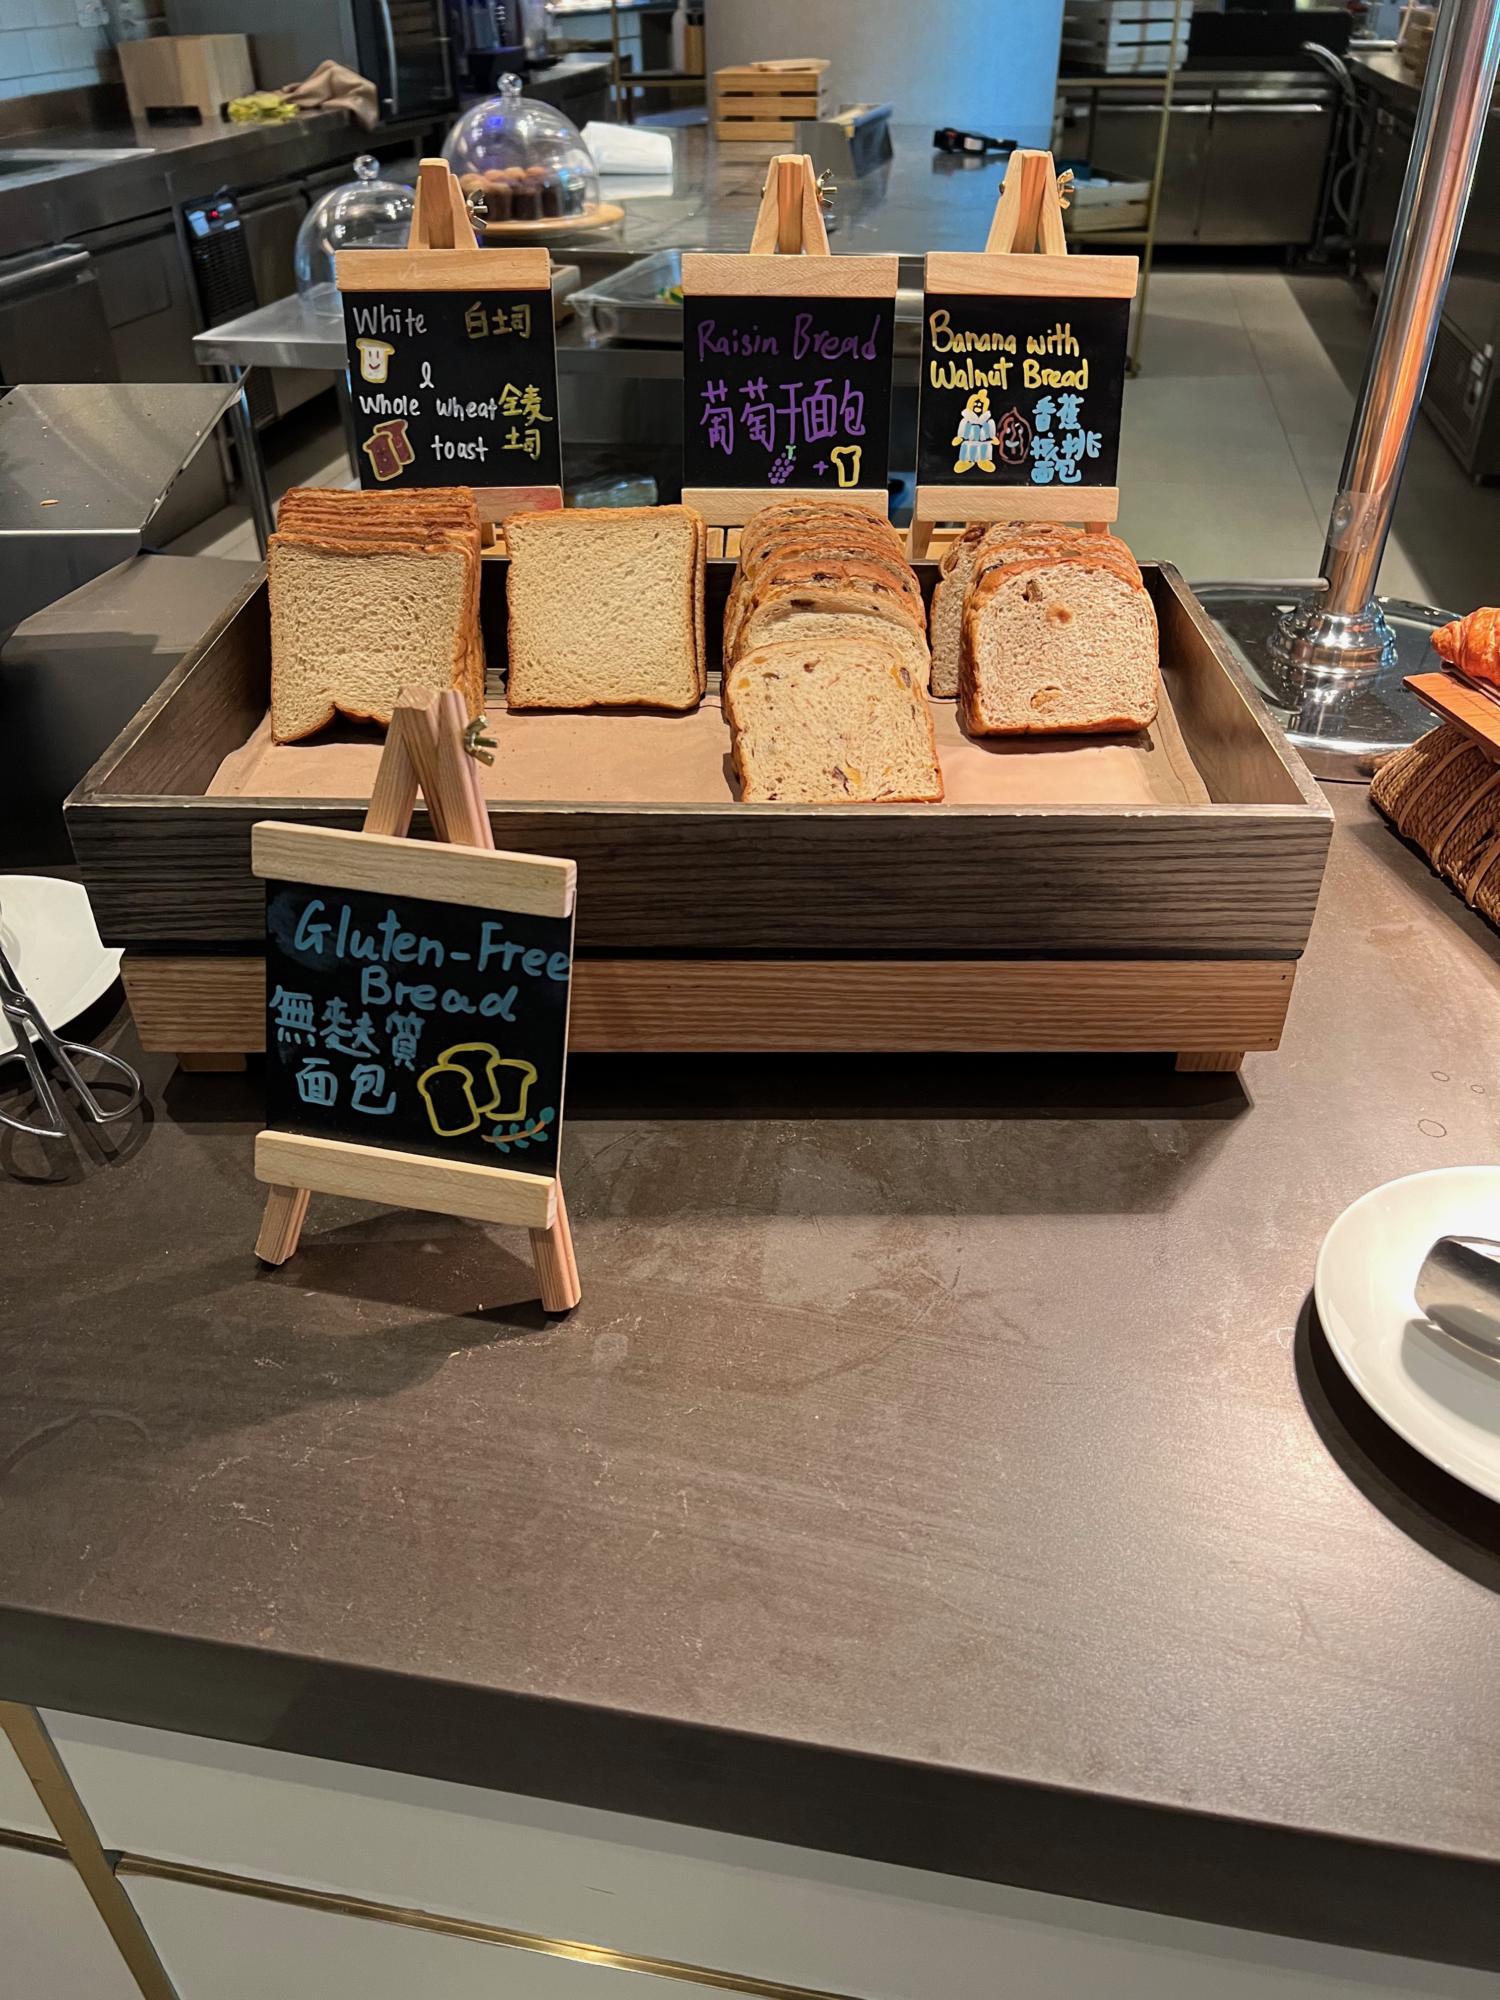 White 白土司
&
whole wheat 全麦
toast 土司
Raisin Bread
葡萄干面包
Banana with
Walnut Bread
香蕉
核桃
面包
Gluten-Free
Bread
無麩質
面包